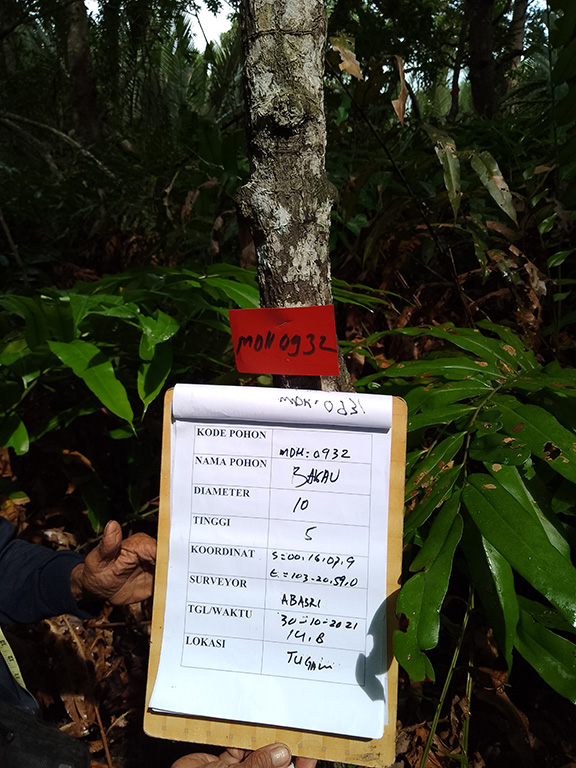 MDH 0932
MDH: 0931
KODE POHON MDH: 0932
NAMA POHON BAKAU
DIAMETER 10
TINGGI 5
KOORDINAT S=00.16.07.9
E=103-20.59.0
SURVEYOR ABASRI
TGL/WAKTU 30-10-2021
14.8
LOKASI